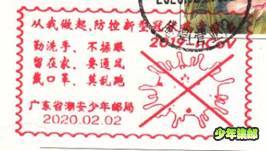 从我做起，防控新型冠状病毒
2019-nCoV
勤洗手、不揉眼
留在家、要通风
戴口罩、莫乱跑
广东省潮安少年邮局
2020.02.02
少年集邮